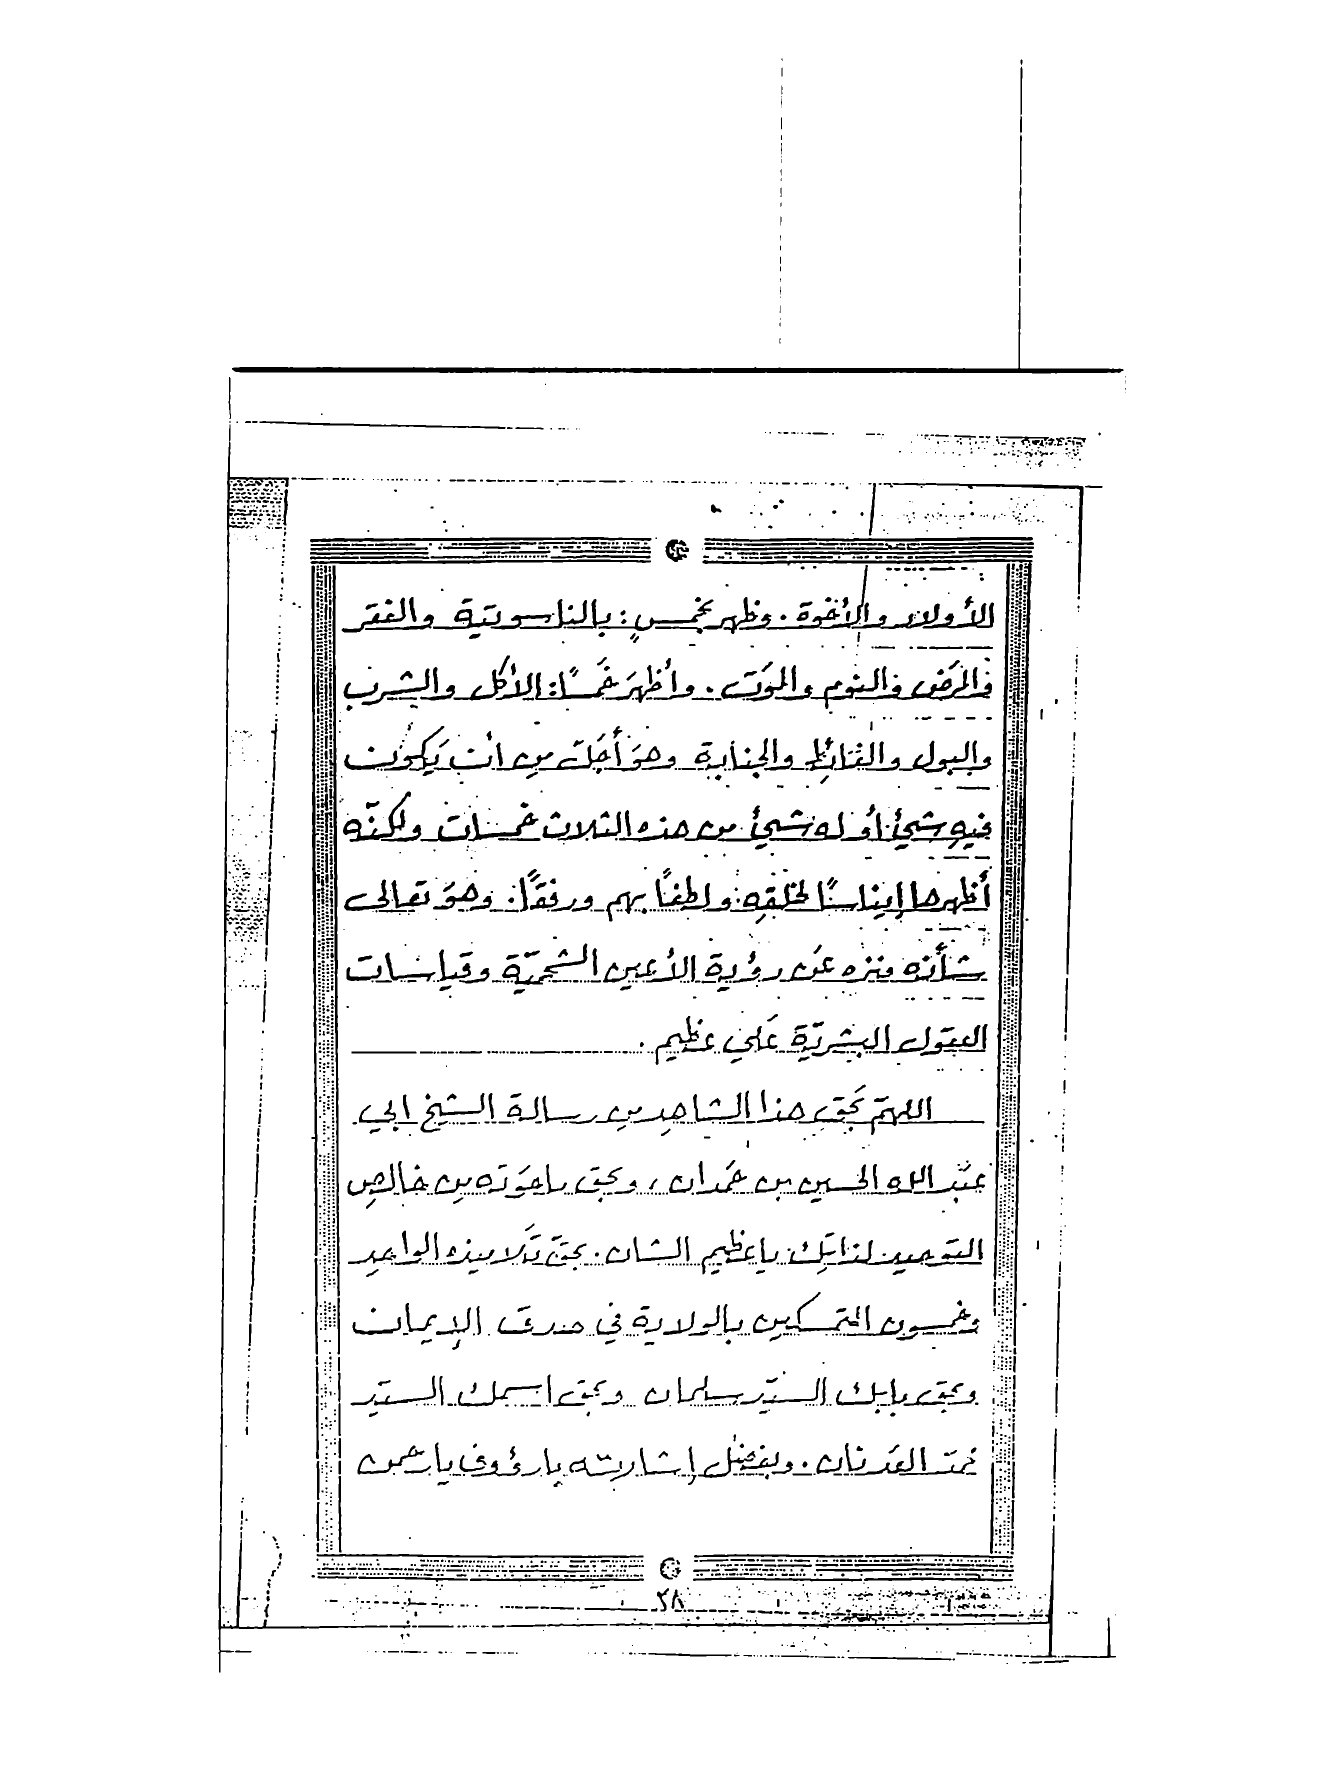 الأولاد والأخوة. وظهر بخمسٍ: بالناسوتية والفقر
والمرض والنوم والموَت. وأظهرَ خمَسًا: الأكل والشرب
والبول والغائط والجنابة وهوَ أجَلّ مِن ان يَكون
فيهِ شيئ أو له شيئ من هذه الثلاث خمسات ولكنّه
أظهرها إيناسًا لخلقِهِ ولطفًا بهم ورفقًا. وهوَ تعالى
شأنه منزه عَن رؤية الأعين الشحميّة وقياسات
العقول البشريّة عَلي عظيم.
اللهمّ بحَق هذا الشاهِد مِن رسالة الشيخ ابي
عبْد الله الحسين بن حمَدان، وبحق ماحوَته مِن خالِصِ
التوحيد لذاتِك ياعظيم الشان. بحقّ تَلاميذه الواحِد
وخمسون المتمَسكين بالولاية في صدق الإيمان
وبحَق بابك السيّد سلمان وبحَق اسمك السيّد
محمّد العَدنان. وبفضل إشاريته يارؤوف يارحمن
٢٨